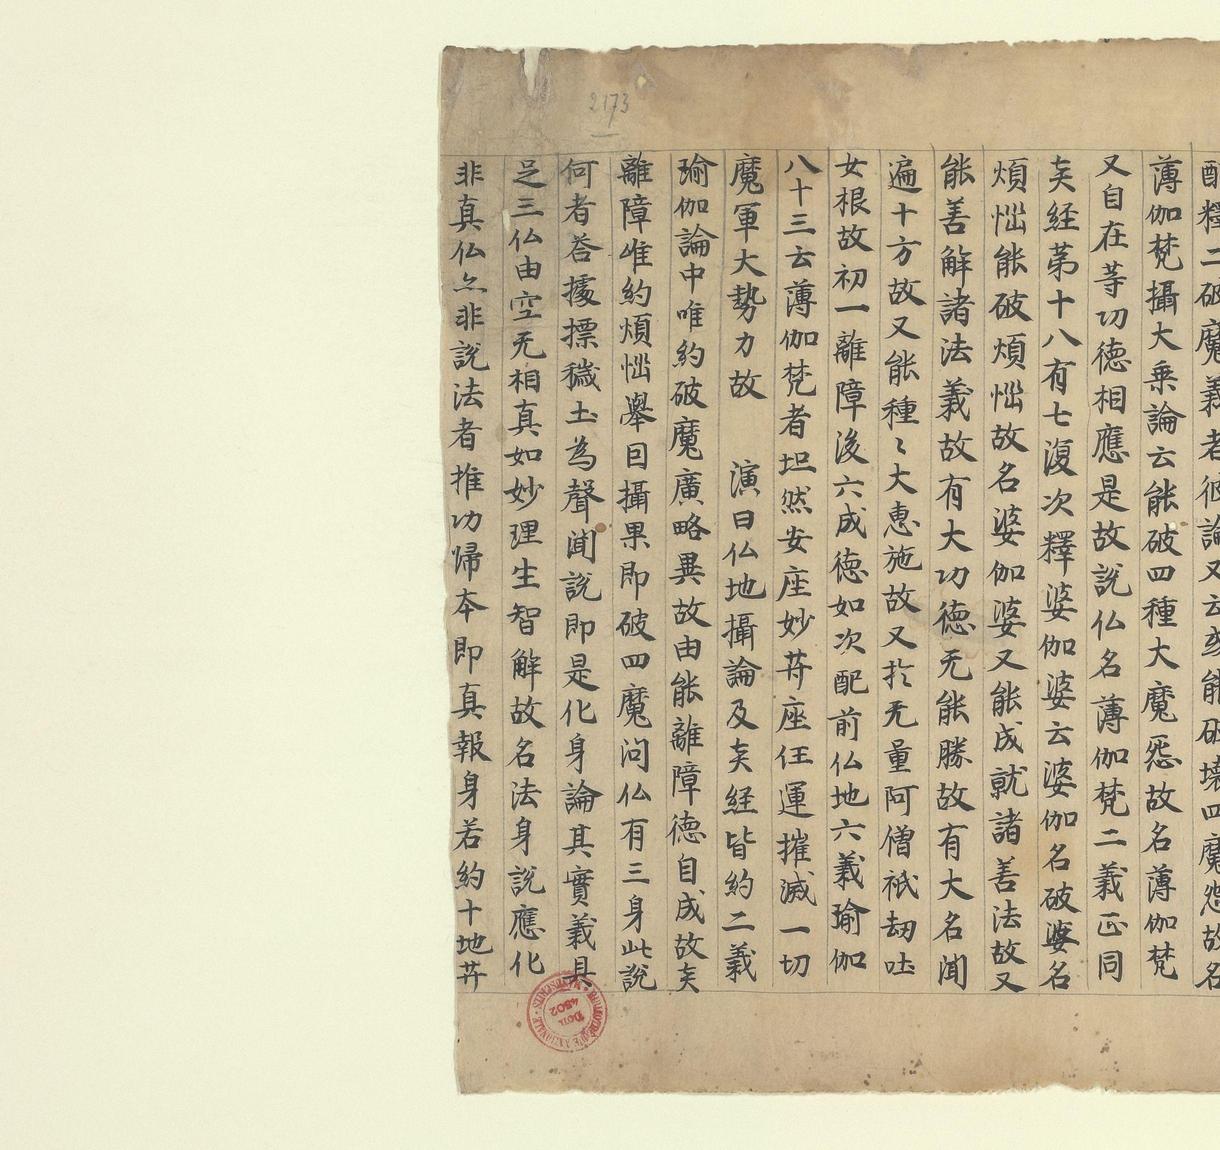 配釋二破魔義者彼論又云或能破壞四魔怨故名
薄伽梵攝大乗論云能破四種大魔怨故名薄伽梵
又自在等功德相應是故説仏名薄伽梵二義正同
矣経苐十八有七復次釋婆伽婆云婆伽名破婆名
煩惱能破煩惱故名婆伽婆又能成就諸善法故又
能善解諸法義故有大功德无能勝故有大名聞
遍十方故又能種〻大惠施故又扵无量阿僧祇劫吐
女根故初一離障後六成德如次配前仏地六義瑜伽
八十三云薄伽梵者坦然安座妙䒭座任運摧滅一切
魔軍大勢力故　演曰仏地攝論及矣経皆約二義
瑜伽論中唯約破魔廣略異故由能離障德自成故矣
離障唯約煩惱舉囙攝果即破四魔问仏有三身此説
何者荅據摽穢土為聲聞説即是化身論其實義具
足三仏由空无相真如妙理生智解故名法身説應化
非真仏亦非説法者推功歸本即真報身若約十地䒭
2173
BIBLIOTHÈQUE NATIONALE · MANUSCRITS
Don
4502